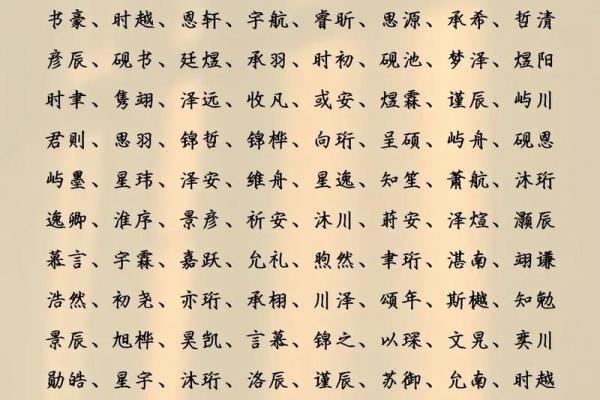 书豪、时越、恩轩、宇航、睿昕、思源、承希、哲清
彦辰、砚书、廷煜、承羽、时初、砚池、梦泽、煜阳
时聿、隽翊、泽远、收凡、或安、煜霖、谨辰、屿川
君则、思羽、锦哲、锦桦、向珩、呈硕、屿舟、砚恩
屿墨、星玮、泽安、维舟、星逸、知笙、萧航、沐珩
逸卿、淮序、景彦、祈安、沐川、莳安、泽煊、灏辰
慕言、宇霖、嘉跃、允礼、煦然、聿珩、湛南、翊谦
浩然、初尧、亦珩、承栩、川泽、颂年、斯樾、知勉
景辰、旭桦、昊凯、言慕、锦之、以琛、文晃、奕川
勋皓、星宇、沐珩、洛辰、谨辰、苏御、允南、时越